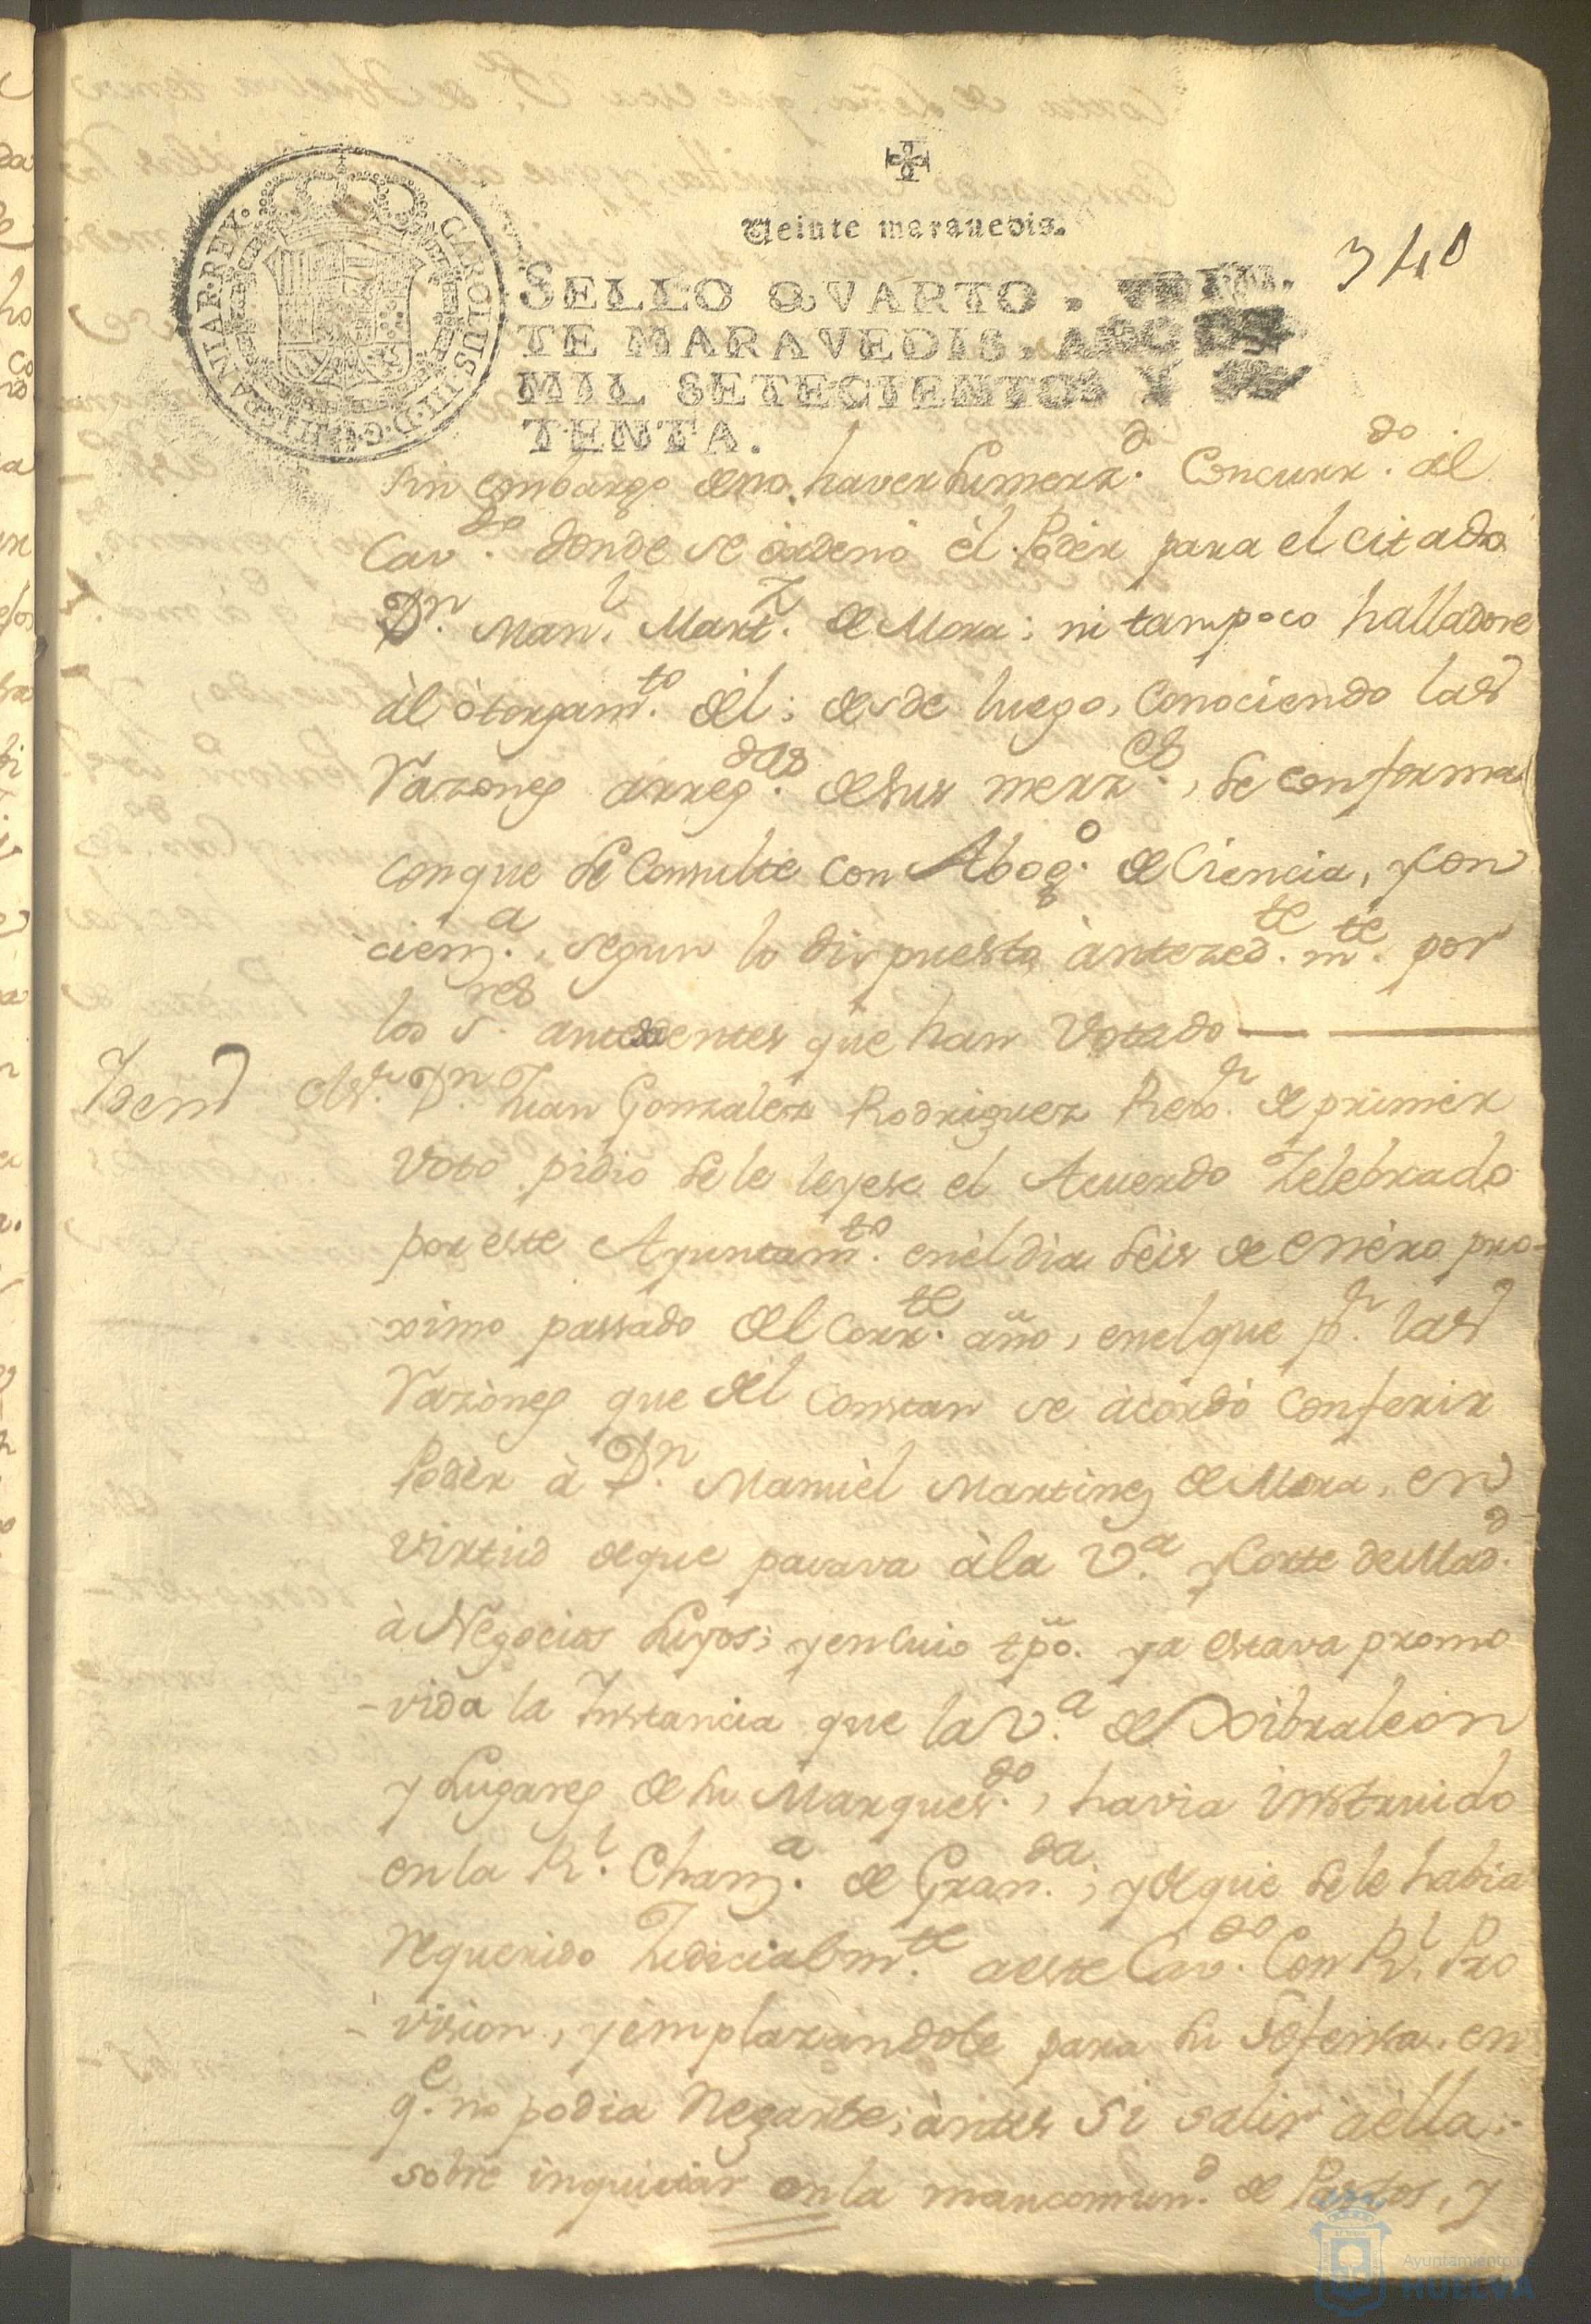 Veinte maravedis.
340
SELLO QVARTO. VEIN-
TE MARAVEDIS. AÑO DE
MIL SETECIENTOS Y SE-
TENTA.
CAROLUS III. D. G. HISPANIAR. REX.
sin embargo de no haver su merz.d Concurr.do al
Cav.do donde se ordenó èl Podèr para el citado
D.n Man.l Mart.z de Mora; ni tampoco halladose
àl òtorgam.to dèl; desde luego, Conociendo las
razònes arreg.das de sus merz.es, se conforma
con que se Consulte con Abog.o de Ciencia, y con
cienz.a, segun lo dispuesto àntezed.te m.te por
los s.res antecedentes que han Votado
Idem El s.r D.n Juan Gonzalez Rodriguez Rexo.r de primer
Voto pidio se le leyese el Acuerdo Zelebrado
por este Ayuntam.to en èl dia seis de enèro pro-
ximo passado del Corr.te año, en el que p.r las
razònes que dèl Constan se àcordò Conferir
Podèr à D.n Manuèl Martinez de Mora, en
virtud de que pasava à la V.a y Corte de Mad.d
à Negocios suyos; y en cuio tpo. ya estava promo
-vida la Instancia que la V.a de Xibraleòn
y Lugares de su Marques.do, havia instruido
en la R.l Chanz.a de Gran.da; y de que se le habia
requerido Judicialm.te a este Cav.do Con R.l Pro
-vision, y emplazandole para su defensa, en
q.e no podia Negarse; àntes si salir àèlla;
sobre inquietar en la mancomun.d de Pastos, y
Ayuntamiento de
HUELVA